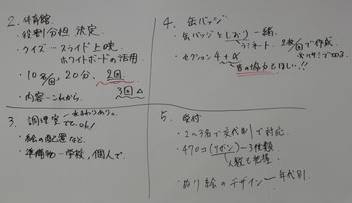 2. 体育館
・役割分担 決定
・クイズ…スライド上映
ホワイトボードの活用
・10名/回, 20分, 2回
3回△
・内容-これから
3. 調理室-水まわりあり。
でもok!
・絵の配置など
・準備物-学校, 個人で
4. 缶バッジ
・缶バッジとしおり一緒
ラミネート
で作成
・セクション4+α
皆の協力もほしい!!
5. 受付
・2〜3名で交代制で対応
・470コ(リボン)-3種類
人数も把握
・ぬり絵のデザイン-年代別